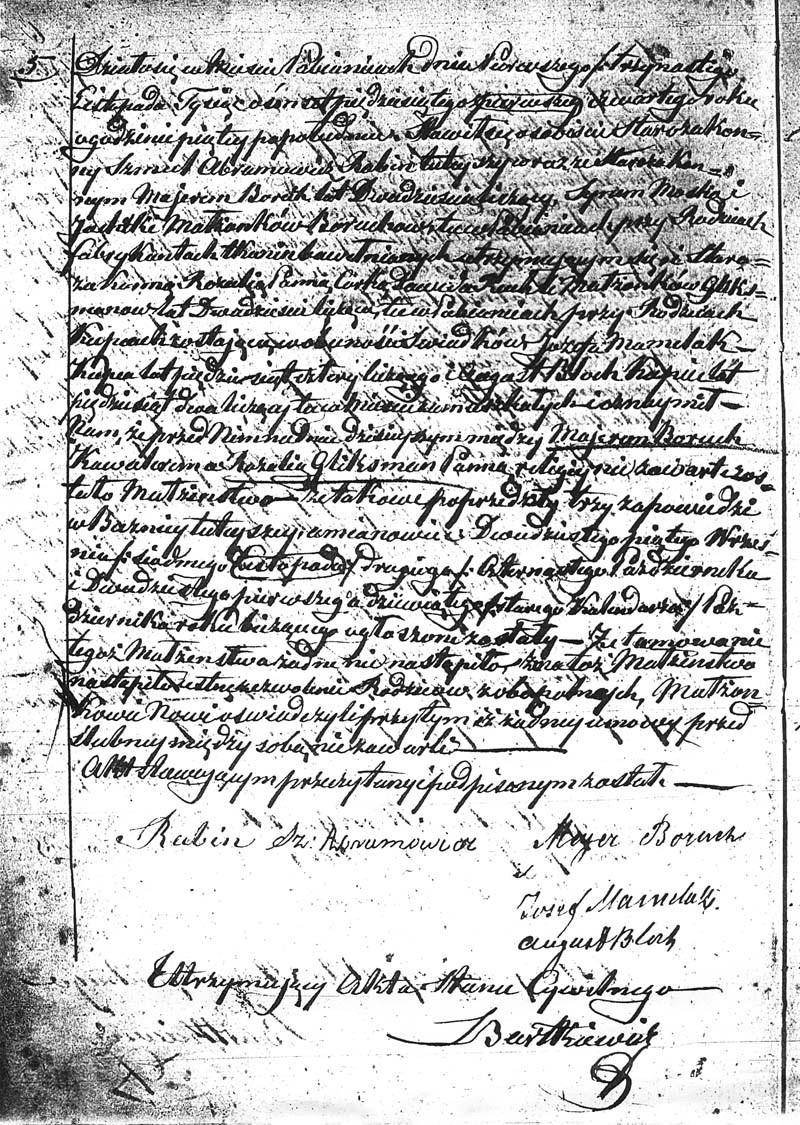 5. Działo się w Mieście Pabianicach dnia Pierwszego /: trzynastego
Listopada Tysiąc ośmset pięćdziesiątego pierwszego czwartego roku
o godzinie piątej popołudniu. Stawił się osobiście Starozakon=
ny Szmul Abramowicz Rabin tutejszy poraz ze Starozakon=
nym Majerem Boruch lat Dwadzieścia liczący, Synem Moska i
Małżonków Boruchów tu w Pabianicach przy Rodzicach
fabrykantach tkanin bawełnianych utrzymującym się i Staro=
zakonną Rozalią Panną Córką Dawida Małżonków Gliks=
manów lat Dwadzieścia liczącą, tu w Pabianicach przy Rodzicach
Kupcach zostającą, w obecności świadków Józefa Mamelak
Kupca lat pięćdziesiąt cztery liczącego i August Bloch Kupiec lat
pięćdziesiąt dwa liczący tu w Mieście zamieszkałych i oznaymił
Nam, że przed Nim na dniu dzisiejszym między Majerem Boruch
Kawalerem a Rozalią Gliksman Panną religijnie zawarte zos=
tało Małżeństwo — Że takowe poprzedziły trzy zapowiedzi
w Bożnicy tutejszej, a mianowicie: Dwudziestego piątego Wrześ=
nia /: siódmego Listopada / drugiego /: Czternastego Października
i Dwudziestego pierwszego a dziewiątego /: starego Kalendarza :/ Paź=
dziernika roku bieżącego ogłoszone zostały — Że tamowanie
tegoż Małżeństwa żadne nie nastąpiło, że na toż Małżeństwo
nastąpiło ustne zezwolenie Rodziców z obopolnych, Małżon
kowie Nowi oświadczyli przytym iż żadnej umowy przed
ślubnej między sobą nie zawarli
Akt stawającym przeczytany i podpisanym został.
Rabin Sz: Abramowicz Mayer Boruch
Josef Mamelak.
August Bloch
Utrzymujący Akta Stanu Cywilnego
Bartkiewicz